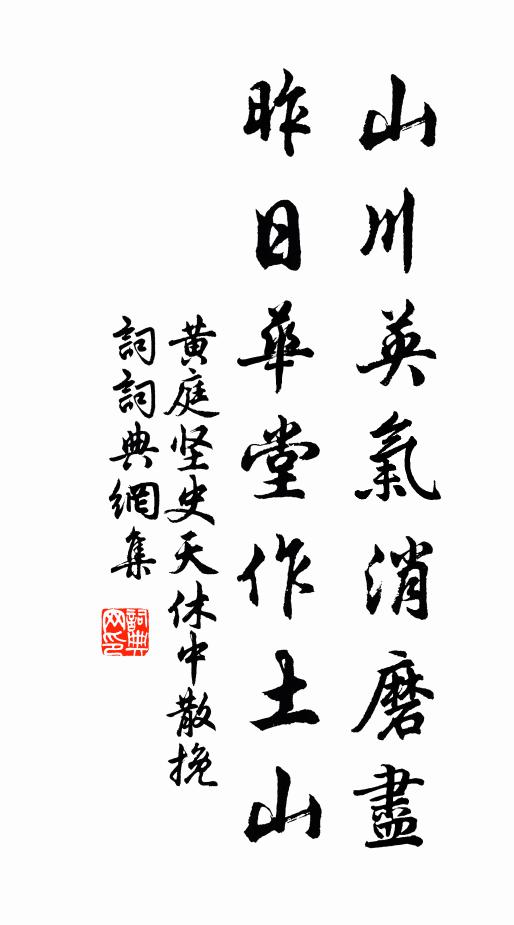 山川英氣消磨盡
昨日華堂作土山
黄庭坚史天休中散挽
詞詞典網集
詞典
网印